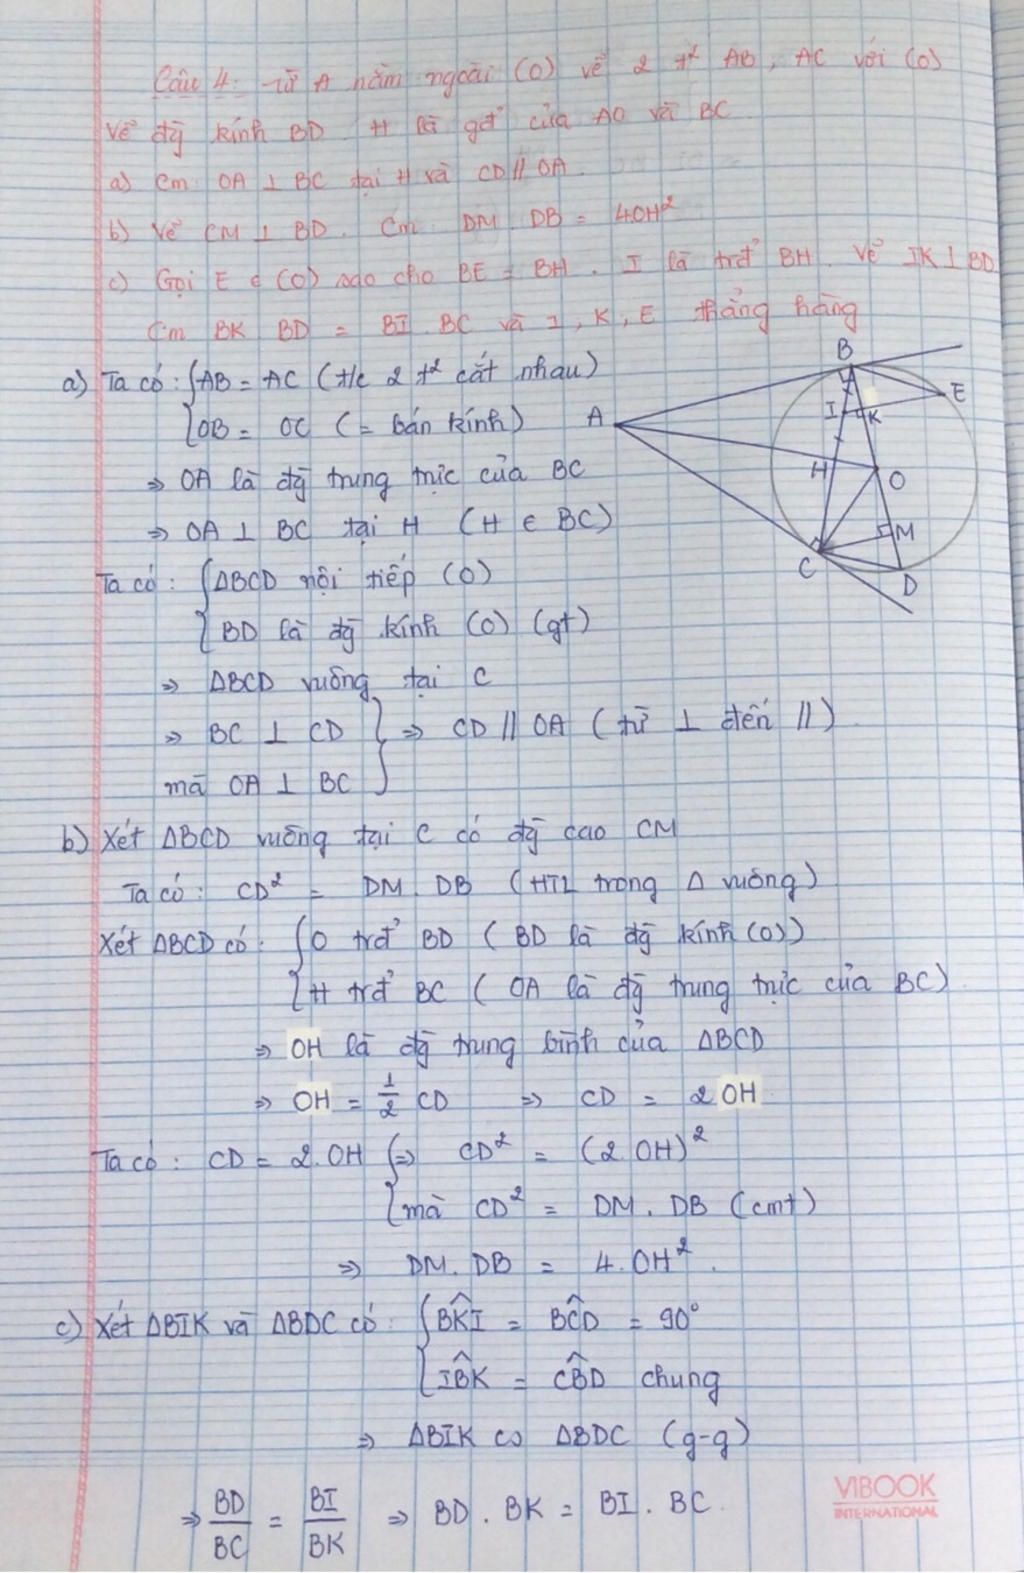 Câu 4: Từ A nằm ngoài (O) vẽ 2 t² AB, AC với (O)
Vẽ đg̃ kính BD H là gđ' của AO và BC
a) Cm: OA ⊥ BC tại H và CD // OA.
b) Vẽ CM ⊥ BD. Cm: DM. DB = 4OH²
c) Gọi E ∈ (O) sao cho BE = BH. I là trđ' BH. Vẽ IK ⊥ BD
Cm BK BD = BI. BC và I, K, E thẳng hàng
a) Ta có: { AB = AC (t/c 2 t² cắt nhau)
OB = OC (= bán kính)
⇒ OA là đg̃ trung trực của BC
⇒ OA ⊥ BC tại H (H ∈ BC)
Ta có: { ΔBCD nội tiếp (O)
BD là đg̃ kính (O) (gt)
⇒ ΔBCD vuông tại C
⇒ BC ⊥ CD } ⇒ CD // OA (từ ⊥ đến //)
mà OA ⊥ BC
A
B
E
I
K
H
O
M
C
D
b) Xét ΔBCD vuông tại C có đg̃ cao CM
Ta có: CD² = DM. DB (HTL trong Δ vuông)
Xét ΔBCD có: { O trđ' BD (BD là đg̃ kính (O))
H trđ' BC (OA là đg̃ trung trực của BC).
⇒ OH là đg̃ trung bình của ΔBCD
⇒ OH = 1/2 CD ⇒ CD = 2OH
Ta có: CD = 2.OH { ⇒ CD² = (2.OH)²
mà CD² = DM. DB (cmt)
⇒ DM. DB = 4.OH².
c) Xét ΔBIK và ΔBDC có: { B̂KI = B̂CD = 90°
ÎBK = ĈBD chung
⇒ ΔBIK ∽ ΔBDC (g-g)
⇒ BD/BC = BI/BK ⇒ BD. BK = BI. BC.
VIBOOK
INTERNATIONAL